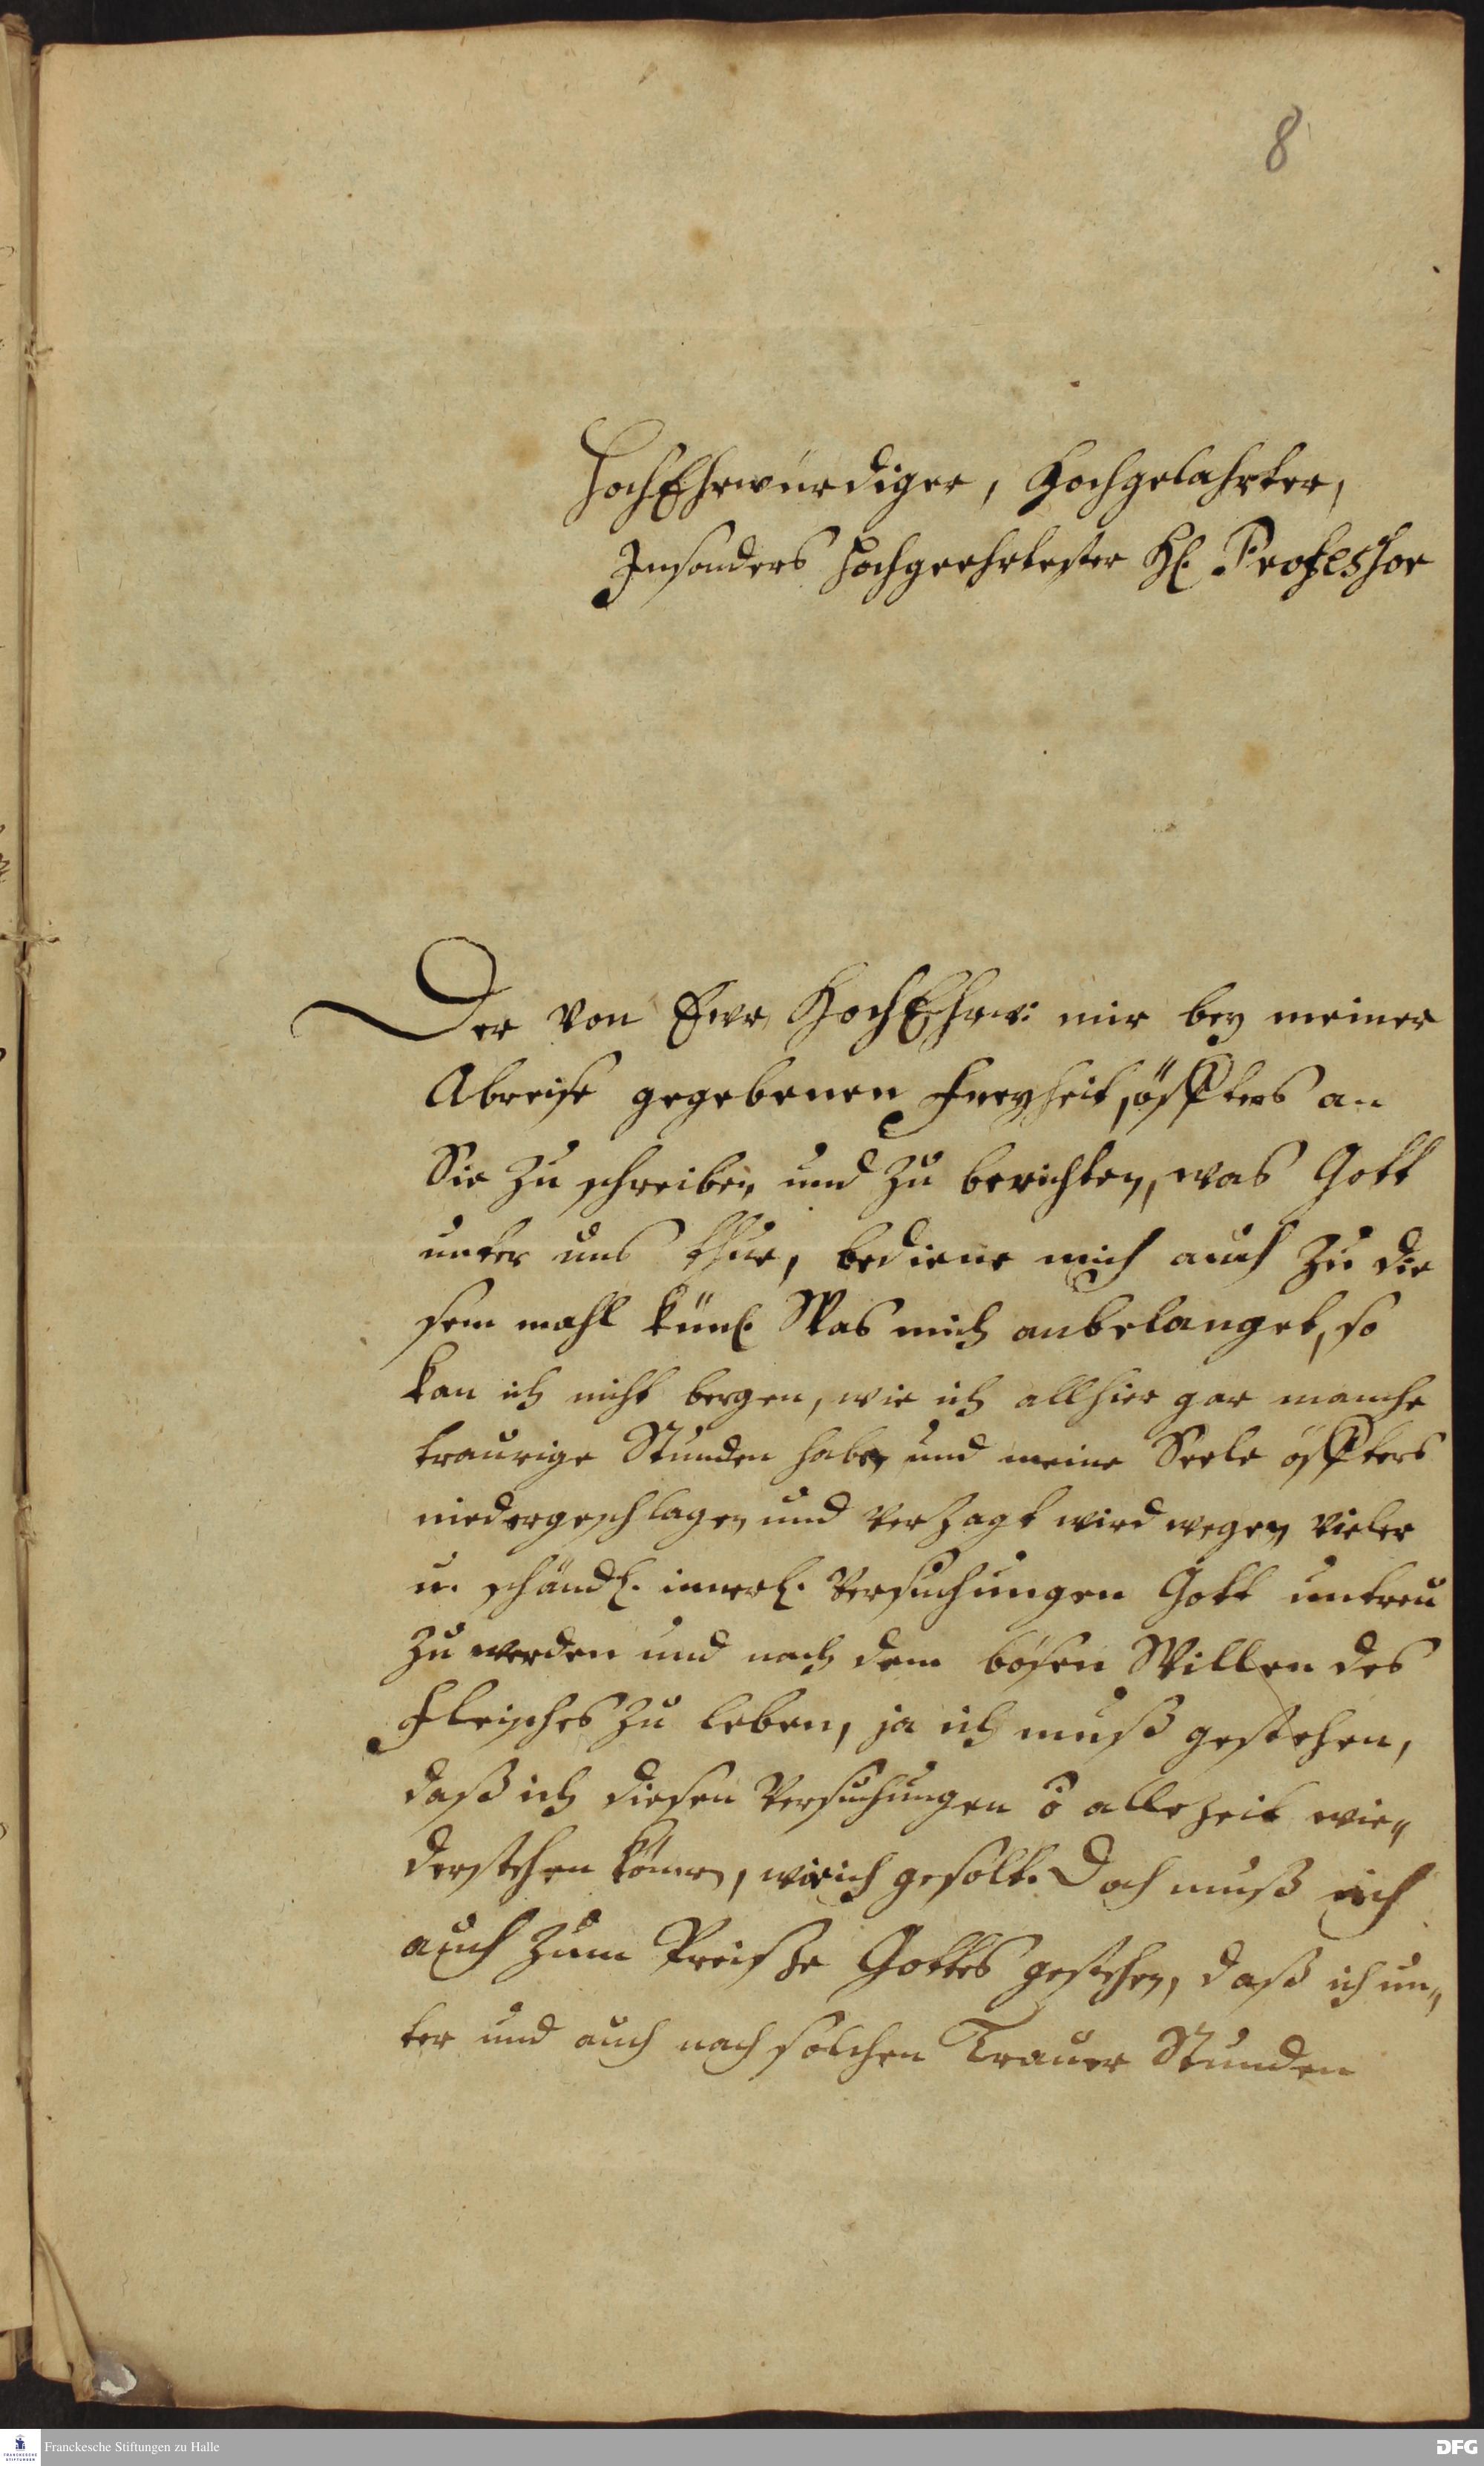 8
HochEhrwürdiger, Hochgelahrter,
Insonders Hochgeehrtester H. Professor
Der von Ewr HochEhrw: mir bey meiner
Abreise gegebenen Freyheit, öffters an
Sie zu schreiben und zu berichten, was Gott
unter uns thue, bediene mich auch zu die
sem mahl Was mich anbelanget, so
kan ich nicht bergen, wie ich allhier gar manche
traurige Stunden habe, und meine Seele öffters
niedergeschlagen und verzagt wird wegen vieler
u. schändl. innerl. Versuchungen Gott untreu
zu werden und nach dem bösen Willen des
Fleisches zu leben, ja ich muß gestehen,
daß ich diesen Versuchungen õ allezeit wie„
derstehen können, wie ich gesolt. Doch muß ich
auch zum Preise Gottes gestehen, daß ich un„
ter und auch nach solchen Trauer Stunden
Franckesche Stiftungen zu Halle
DFG